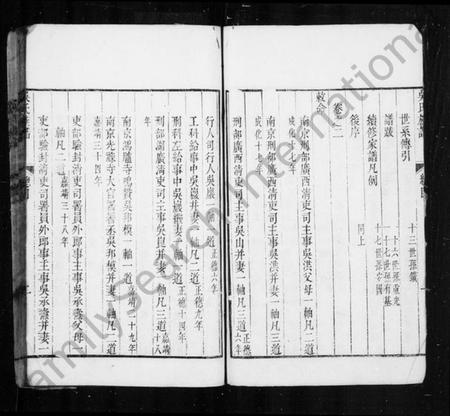 世系傳引
十三世孫鎡
譜䟦
十六世孫重光
十七世孫有基
續修家譜凡例
十七世孫安國
後序
同上
卷之二
敕命
南京刑部廣西清吏司主事吳洪父母一軸凡二道
成化
南京刑部廣西清吏司主事吳洪并妻一軸凡二道
成化十
刑部廣西清吏司主事吳山并妻一軸凡三道正德六年
行人司行人吳巖一軸凡一道正德九年
工科給事中吳巖并妻一軸凡二道
刑科左給事中吳巖繼妻一軸凡一道正德十四年
刑部湖廣清吏司主事吳崑并妻一軸凡三道嘉靖十八
南京鴻臚寺鳴贊吳邦棟一軸一道嘉靖二十九年
南京光祿寺大官署署丞吳邦模并妻一軸凡二道
嘉靖三十四年
吏部驗封清吏司署員外郎事主事吳承燾父母一
軸凡二道嘉靖三十八年
吏部驗封清吏司署員外郎事主事吳承燾并妻一
FamilySearch International